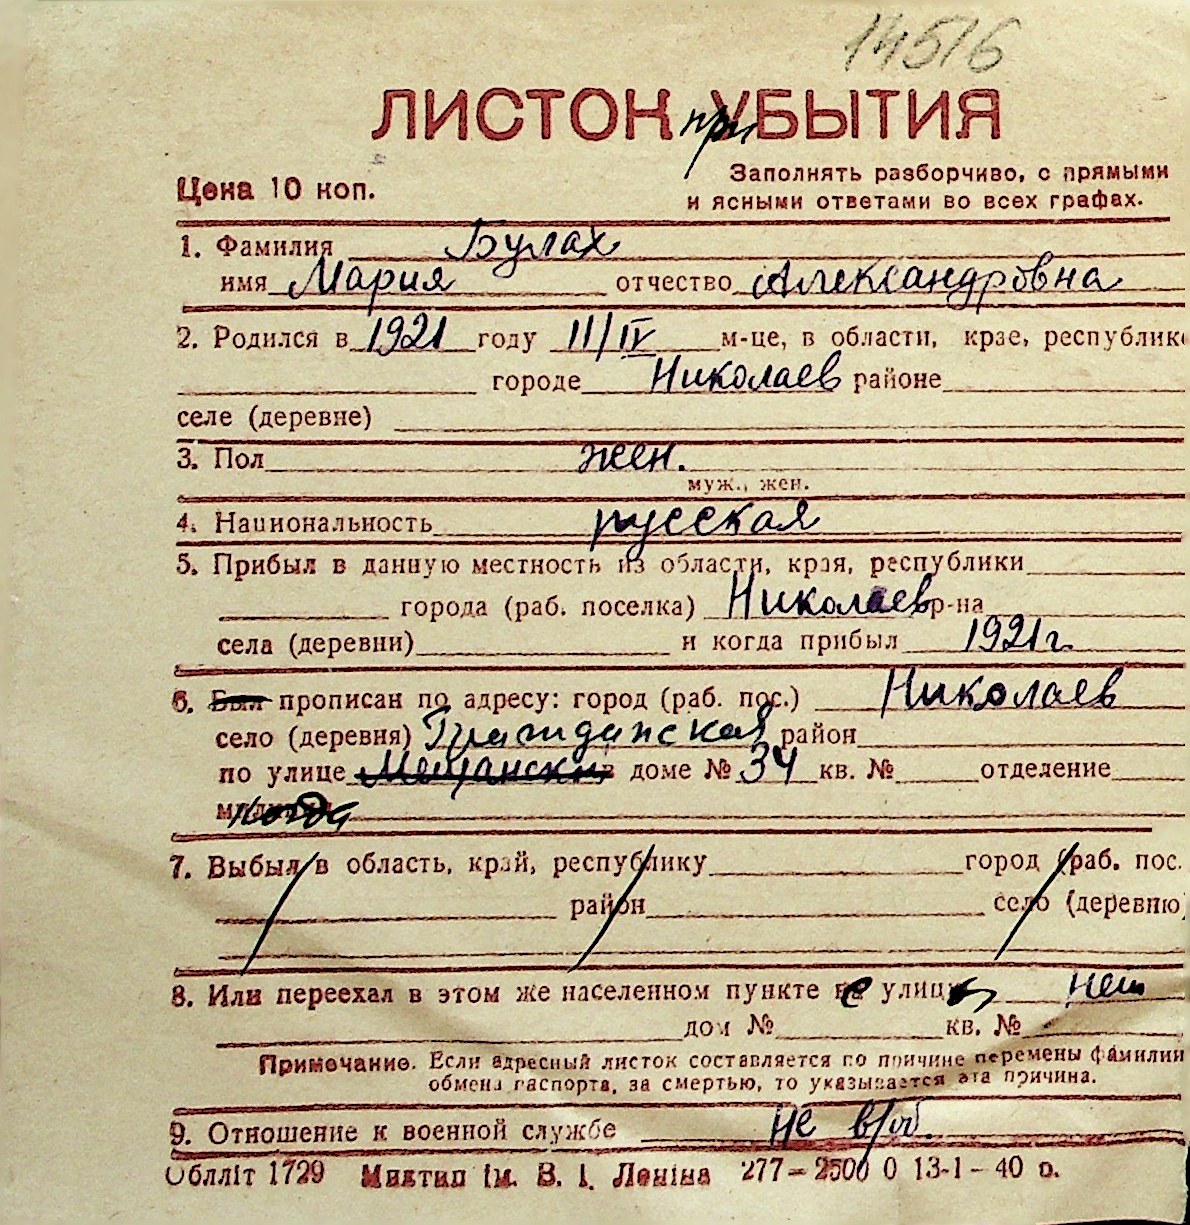 14516
ЛИСТОК при УБЫТИЯ
Цена 10 коп.
Заполнять разборчиво, с прямыми
и ясными ответами во всех графах.
1. Фамилия Булах
имя Мария отчество Александровна
2. Родился в 1921 году III/IV м-це, в области, крае, республике
городе Николаев районе
селе (деревне)
3. Пол жен.
муж., жен.
4. Национальность русская
5. Прибыл в данную местность из области, края, республики
города (раб. поселка) Николаев р-на
села (деревни) и когда прибыл 1921 г.
6. Был прописан по адресу: город (раб. пос.) Николаев
село (деревня) Гражданская район
по улице Мещански в доме № 34 кв. № отделение
когда
7. Выбыл в область, край, республику город (раб. пос.
район село (деревню)
8. Или переехал в этом же населенном пункте с улицы нет
дом № кв. №
Примечание. Если адресный листок составляется по причине перемены фамилии
обмена паспорта, за смертью, то указывается эта причина.
9. Отношение к военной службе не в/об.
Облліт 1729 Миктип ім. В. І. Леніна 277–2500 0 13-1–40 р.